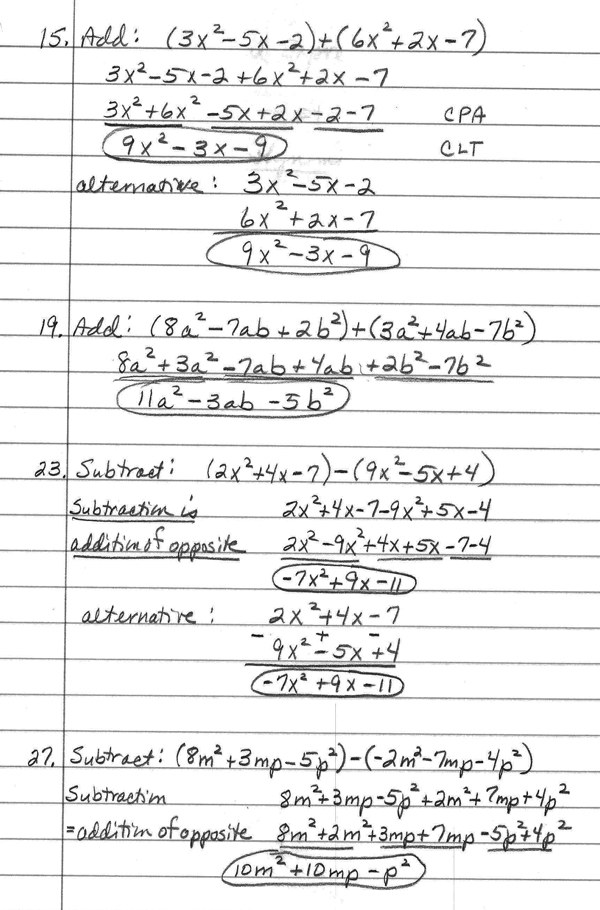 15. Add: (3x²-5x-2)+(6x²+2x-7)
3x²-5x-2+6x²+2x-7
3x²+6x²-5x+2x-2-7 CPA
9x²-3x-9 CLT
alternative: 3x²-5x-2
6x²+2x-7
9x²-3x-9
19. Add: (8a²-7ab+2b²)+(3a²+4ab-7b²)
8a²+3a²-7ab+4ab+2b²-7b²
11a²-3ab-5b²
23. Subtract: (2x²+4x-7)-(9x²-5x+4)
Subtraction is 2x²+4x-7-9x²+5x-4
addition of opposite 2x²-9x²+4x+5x-7-4
-7x²+9x-11
alternative: 2x²+4x-7
- + -
9x²-5x+4
-7x²+9x-11
27. Subtract: (8m²+3mp-5p²)-(-2m²-7mp-4p²)
Subtraction 8m²+3mp-5p²+2m²+7mp+4p²
=addition of opposite 8m²+2m²+3mp+7mp-5p²+4p²
10m²+10mp-p²